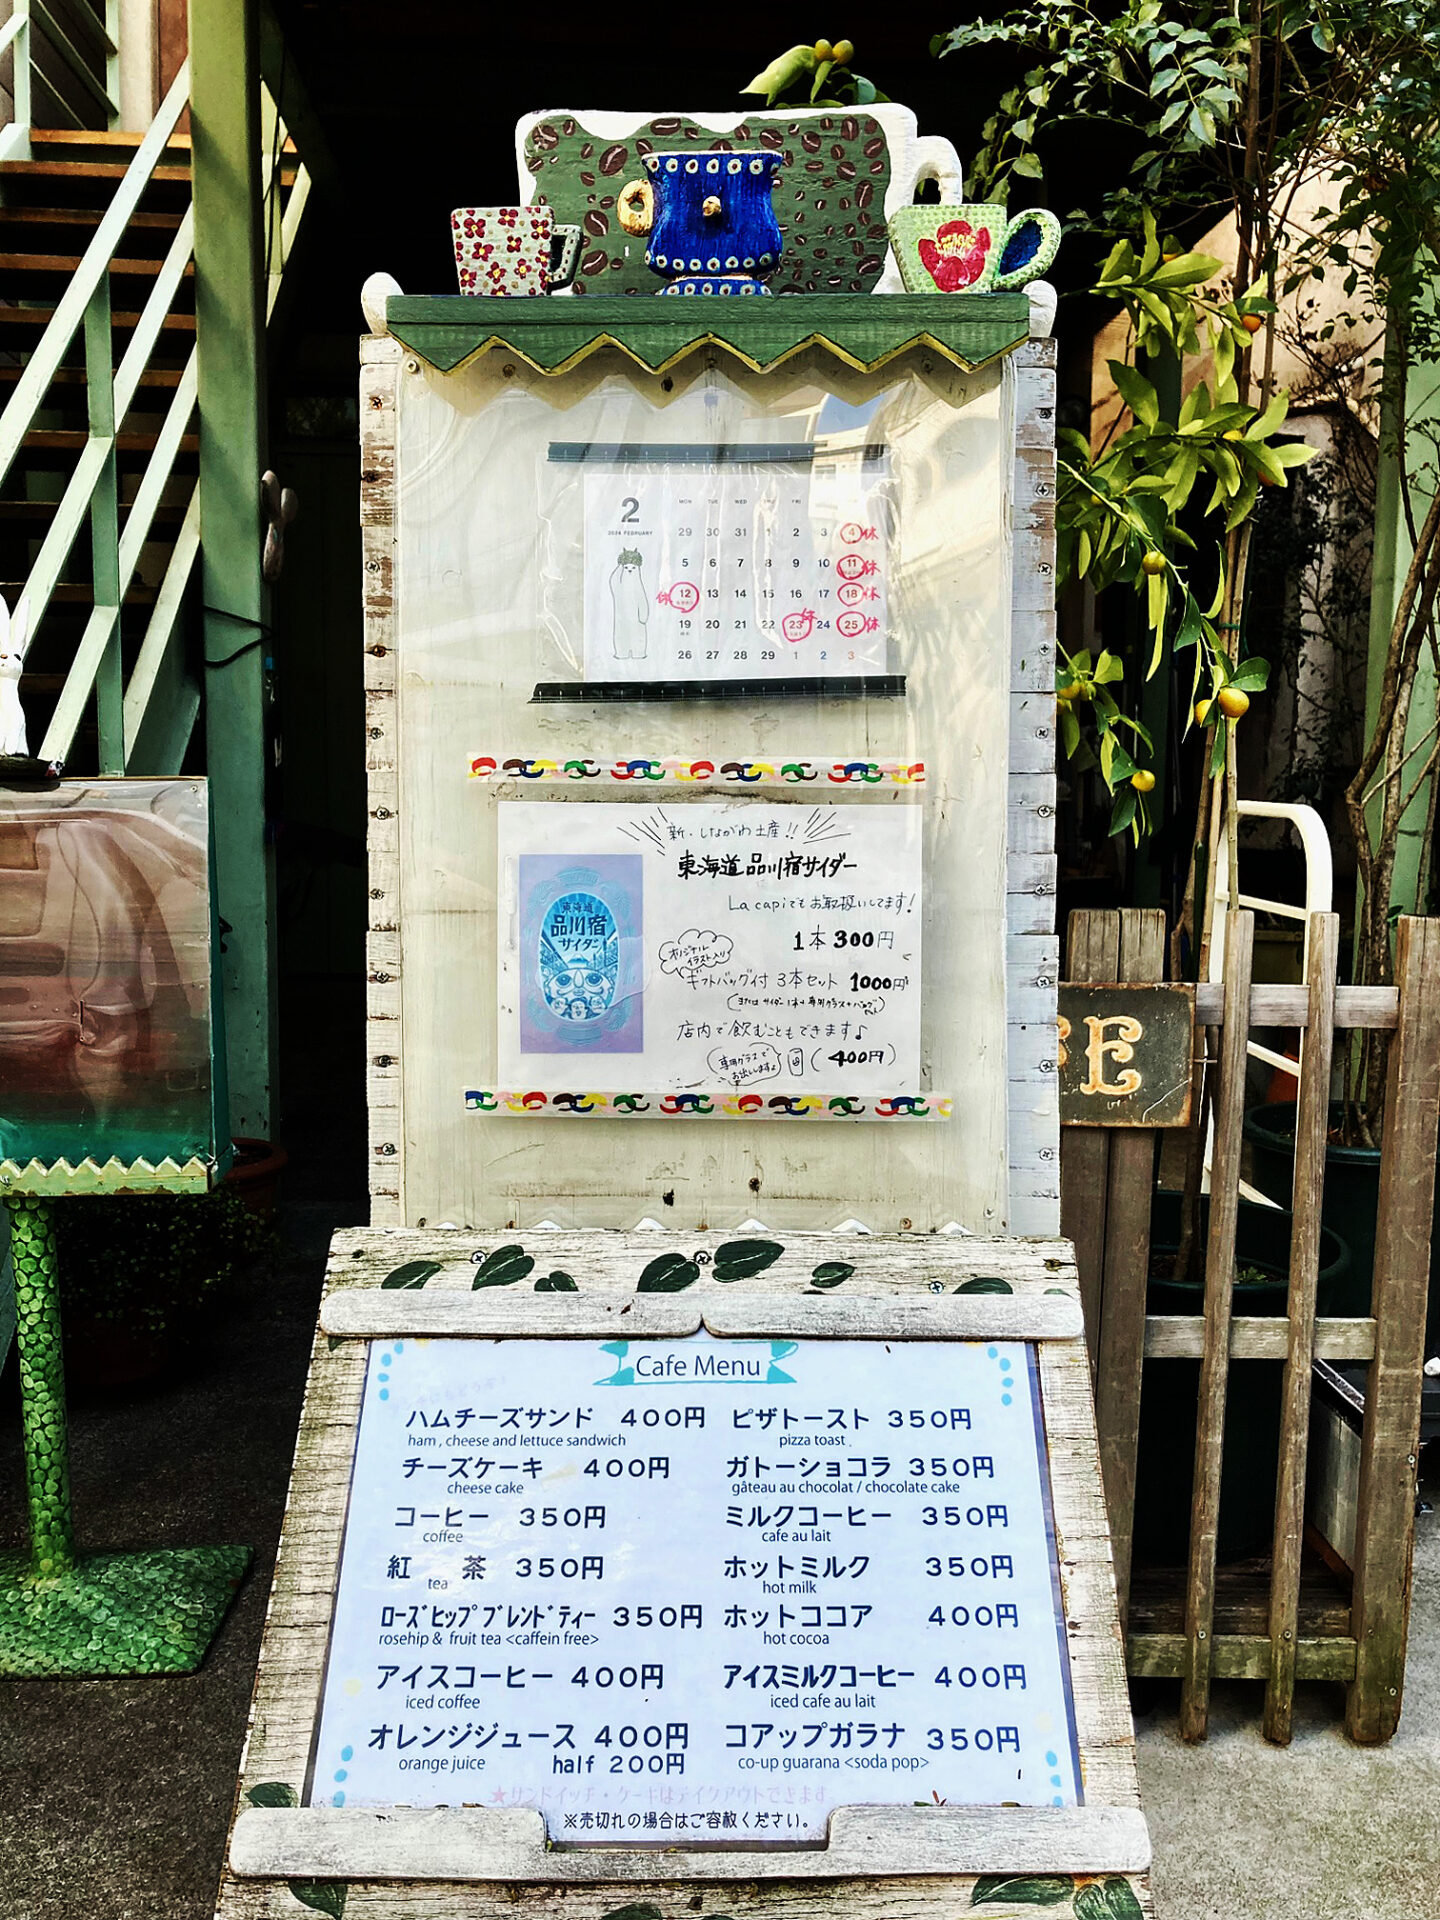 2
2024 FEBRUARY
MON TUE WED THU FRI
29 30 31 1 2 3 4 休
5 6 7 8 9 10 11 休
休 12 13 14 15 16 17 18 休
休
19 20 21 22 23 24 25 休
26 27 28 29 1 2 3
新・しながわ土産!!
東海道品川宿サイダー
La capiでもお取扱いしてます!
1本 300円
オリジナル
イラスト入り
ギフトバッグ付 3本セット 1000円
店内で飲むこともできます♪
専用グラスで
お出しします♪
(400円)
東海道
品川宿
サイダー
BE
Cafe Menu
ハムチーズサンド 400円 ピザトースト 350円
ham , cheese and lettuce sandwich pizza toast
チーズケーキ 400円 ガトーショコラ 350円
cheese cake gâteau au chocolat / chocolate cake
コーヒー 350円 ミルクコーヒー 350円
coffee cafe au lait
紅 茶 350円 ホットミルク 350円
tea hot milk
ローズヒップブレンドティー 350円 ホットココア 400円
rosehip & fruit tea <caffein free> hot cocoa
アイスコーヒー 400円 アイスミルクコーヒー 400円
iced coffee iced cafe au lait
オレンジジュース 400円 コアップガラナ 350円
orange juice half 200円 co-up guarana <soda pop>
★サンドイッチ・ケーキはテイクアウトできます
※売切れの場合はご容赦ください。